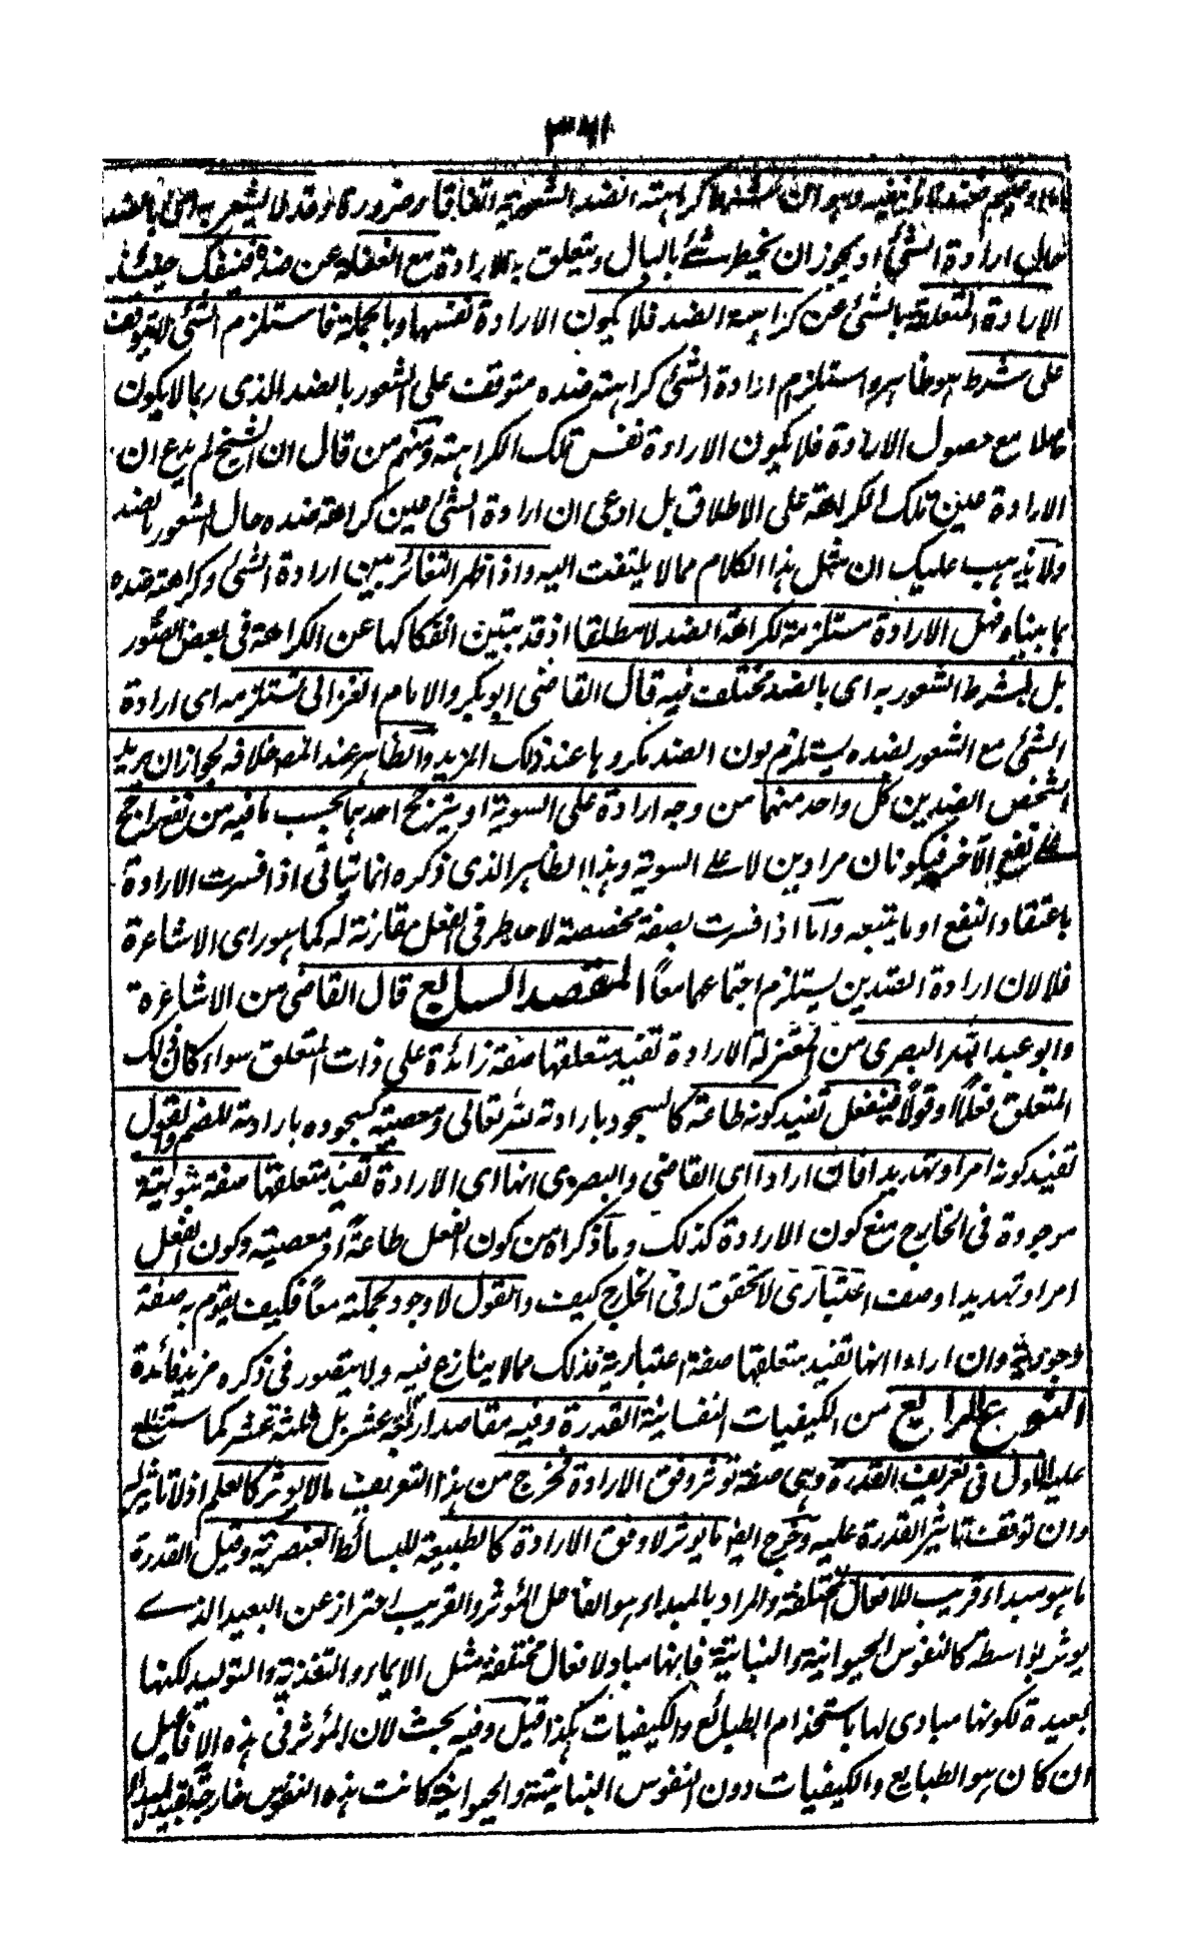 ٣٦١
شرط كراهته الضد الشعور به اتفاقا وضرورة وقد لا يشعر به اى بالضد
حال ارادة الشئ اذ يجوز ان يخطر شئ بالبال ويتعلق به الارادة مع الغفلة عن ضده فينفك حينئذ
الارادة المتعلقة بالشئ عن كراهته الضد فلا يكون الارادة نفسها وبالجملة فاستلزام الشئ لا يتوقف
على شرط هو ظاهر واستلزام ارادة الشئ كراهته ضده متوقف على الشعور بالضد الذى ربما لا يكون
حاصلا مع حصول الارادة فلا يكون الارادة نفس تلك الكراهته ومنهم من قال ان الشيخ لم يدع ان
الارادة عين تلك الكراهة على الاطلاق بل ادعى ان ارادة الشئ عين كراهة ضده حال الشعور بالضد
ولا يذهب عليك ان مثل هذا الكلام مما لا يلتفت اليه واذا ظهر التغائر بين ارادة الشئ وكراهة ضده
بما بيناه فهل الارادة مستلزمة لكراهة الضد لا مطلقا اذ قد تبين انفكاكها عن الكراهة فى بعض الصور
بل بشرط الشعور به اى بالضد مختلف فيه قال القاضى ابو بكر والامام الغزالى تستلزمه اى ارادة
الشئ مع الشعور بضده يستلزم كون الضد مكروها عند ذلك المريد والظاهر عند المصـ خلافه لجواز ان يريد
الشخص الضدين كل واحد منهما من وجه ارادة على السوية او يترجح احدهما بحسب ما فيه من نفع راجح
على نفع الآخر فيكونان مرادين لا على السوية وهذا الظاهر الذى ذكره انما يتاتى اذا فسرت الارادة
باعتقاد النفع او ما يتبعه واما اذا فسرت بصفة مخصصة لاحد طرفى الفعل مقارنة له كما هو راى الاشاعرة
فلا لان ارادة الضدين يستلزم اجتماعهما معا المقصد السابع قال القاضى من الاشاعرة
وابو عبد الله البصرى من المعتزلة الارادة تفيد متعلقها صفة زائدة على ذات المتعلق سواء كان ذلك
المتعلق فعلا او قولا فينفعل تفيد كونه طاعة كالسجود بارادته لله تعالى ومعصية كسجوده بارادته للصنم والقول
تفيد كونه امرا وتهديدا فان ارادا اى القاضى والبصرى انها اى الارادة تفيد متعلقها صفة ثبوتية
موجودة فى الخارج منع كون الارادة كذلك وما ذكراه من كون الفعل طاعة او معصية وكون الفعل
امرا وتهديدا وصف اعتبارى لا تحقق له فى الخارج كيف والقول لا وجود لجملته معا فكيف يقوم به صفة
وجودية وان ارادا انها تفيد متعلقها صفة اعتبارية فذلك مما لا ينازع فيه ولا يتصور فى ذكره مزيد فائدة
النوع الرابع من الكيفيات النفسانية القدرة وفيه مقاصد اربعة عشر بل ثلثة عشر كما ستطلع
عليه الاول فى تعريف القدرة وهى صفة تؤثر وفق الارادة فخرج من هذا التعريف ما لا يوثر كالعلم اذ لا تاثير له
وان توقف تاثير القدرة عليه وخرج ايضا ما يوثر لا وفق الارادة كالطبيعة للبسائط العنصرية وقيل القدرة
ما هو مبداء قريب للافعال المختلفة والمراد بالمبداء هو الفاعل المؤثر والقريب احتراز عن البعيد الذى
يوثر بواسطة كالنفوس الحيوانية والنباتية فانها مباد لافعال مختلفة مثل الانماء والتغذية والتوليد لكنها
بعيدة لكونها مبادى لها باستخدام الطبائع والكيفيات هكذا قيل وفيه بحث لان المؤثر فى هذه الافاعيل
ان كان هو الطبايع والكيفيات دون النفوس النباتية والحيوانية كانت هذه النفوس خارجة بقيد المبداء